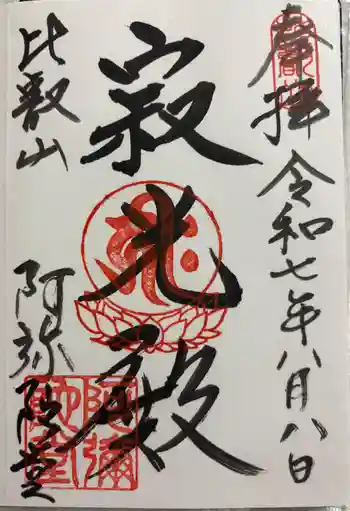 奉拝
令和七年八月八日
寂光殿
比叡山
阿弥陀堂
阿彌陀堂